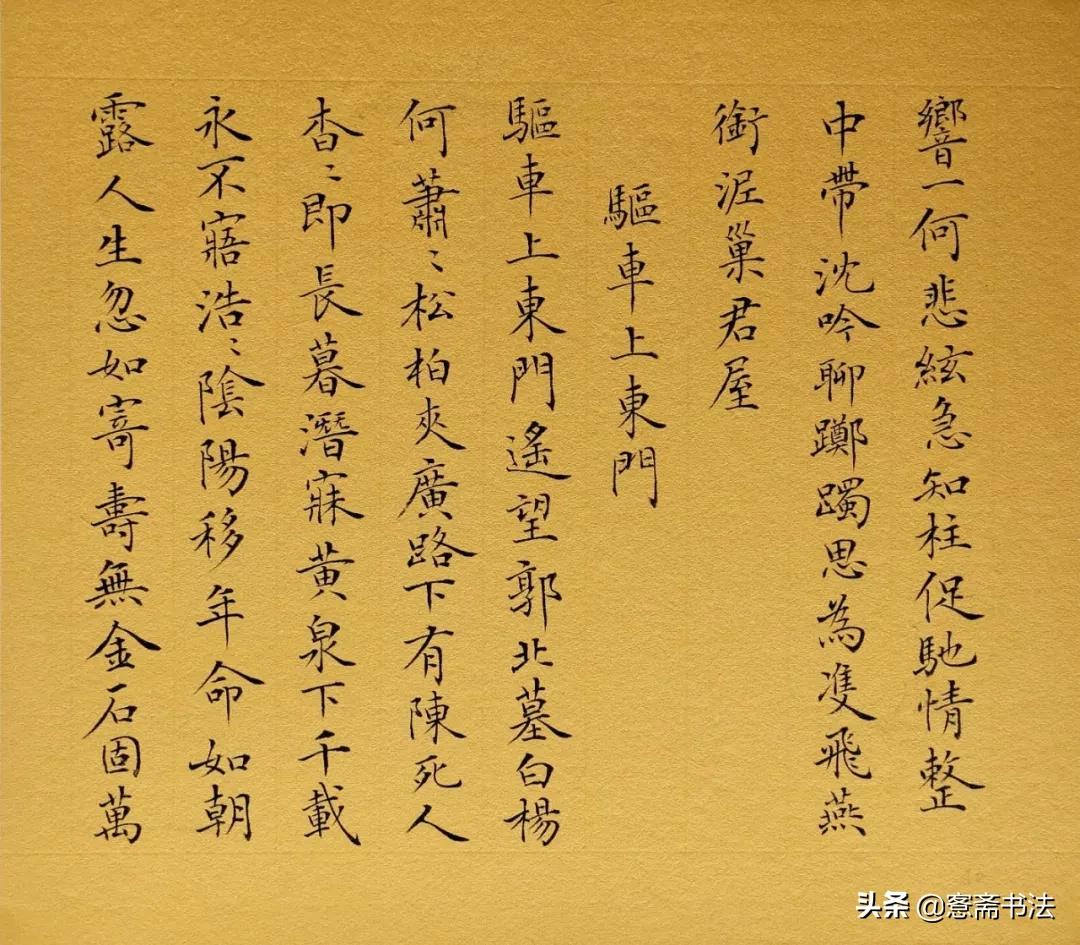 響一何悲絃急知柱促馳情整
中帶沈吟聊躑躅思為雙飛燕
銜泥巢君屋
驅車上東門
驅車上東門遙望郭北墓白楊
何蕭〻松柏夾廣路下有陳死人
杳〻即長暮潛寐黃泉下千載
永不寤浩〻陰陽移年命如朝
露人生忽如寄壽無金石固萬
头条 @愙斋书法